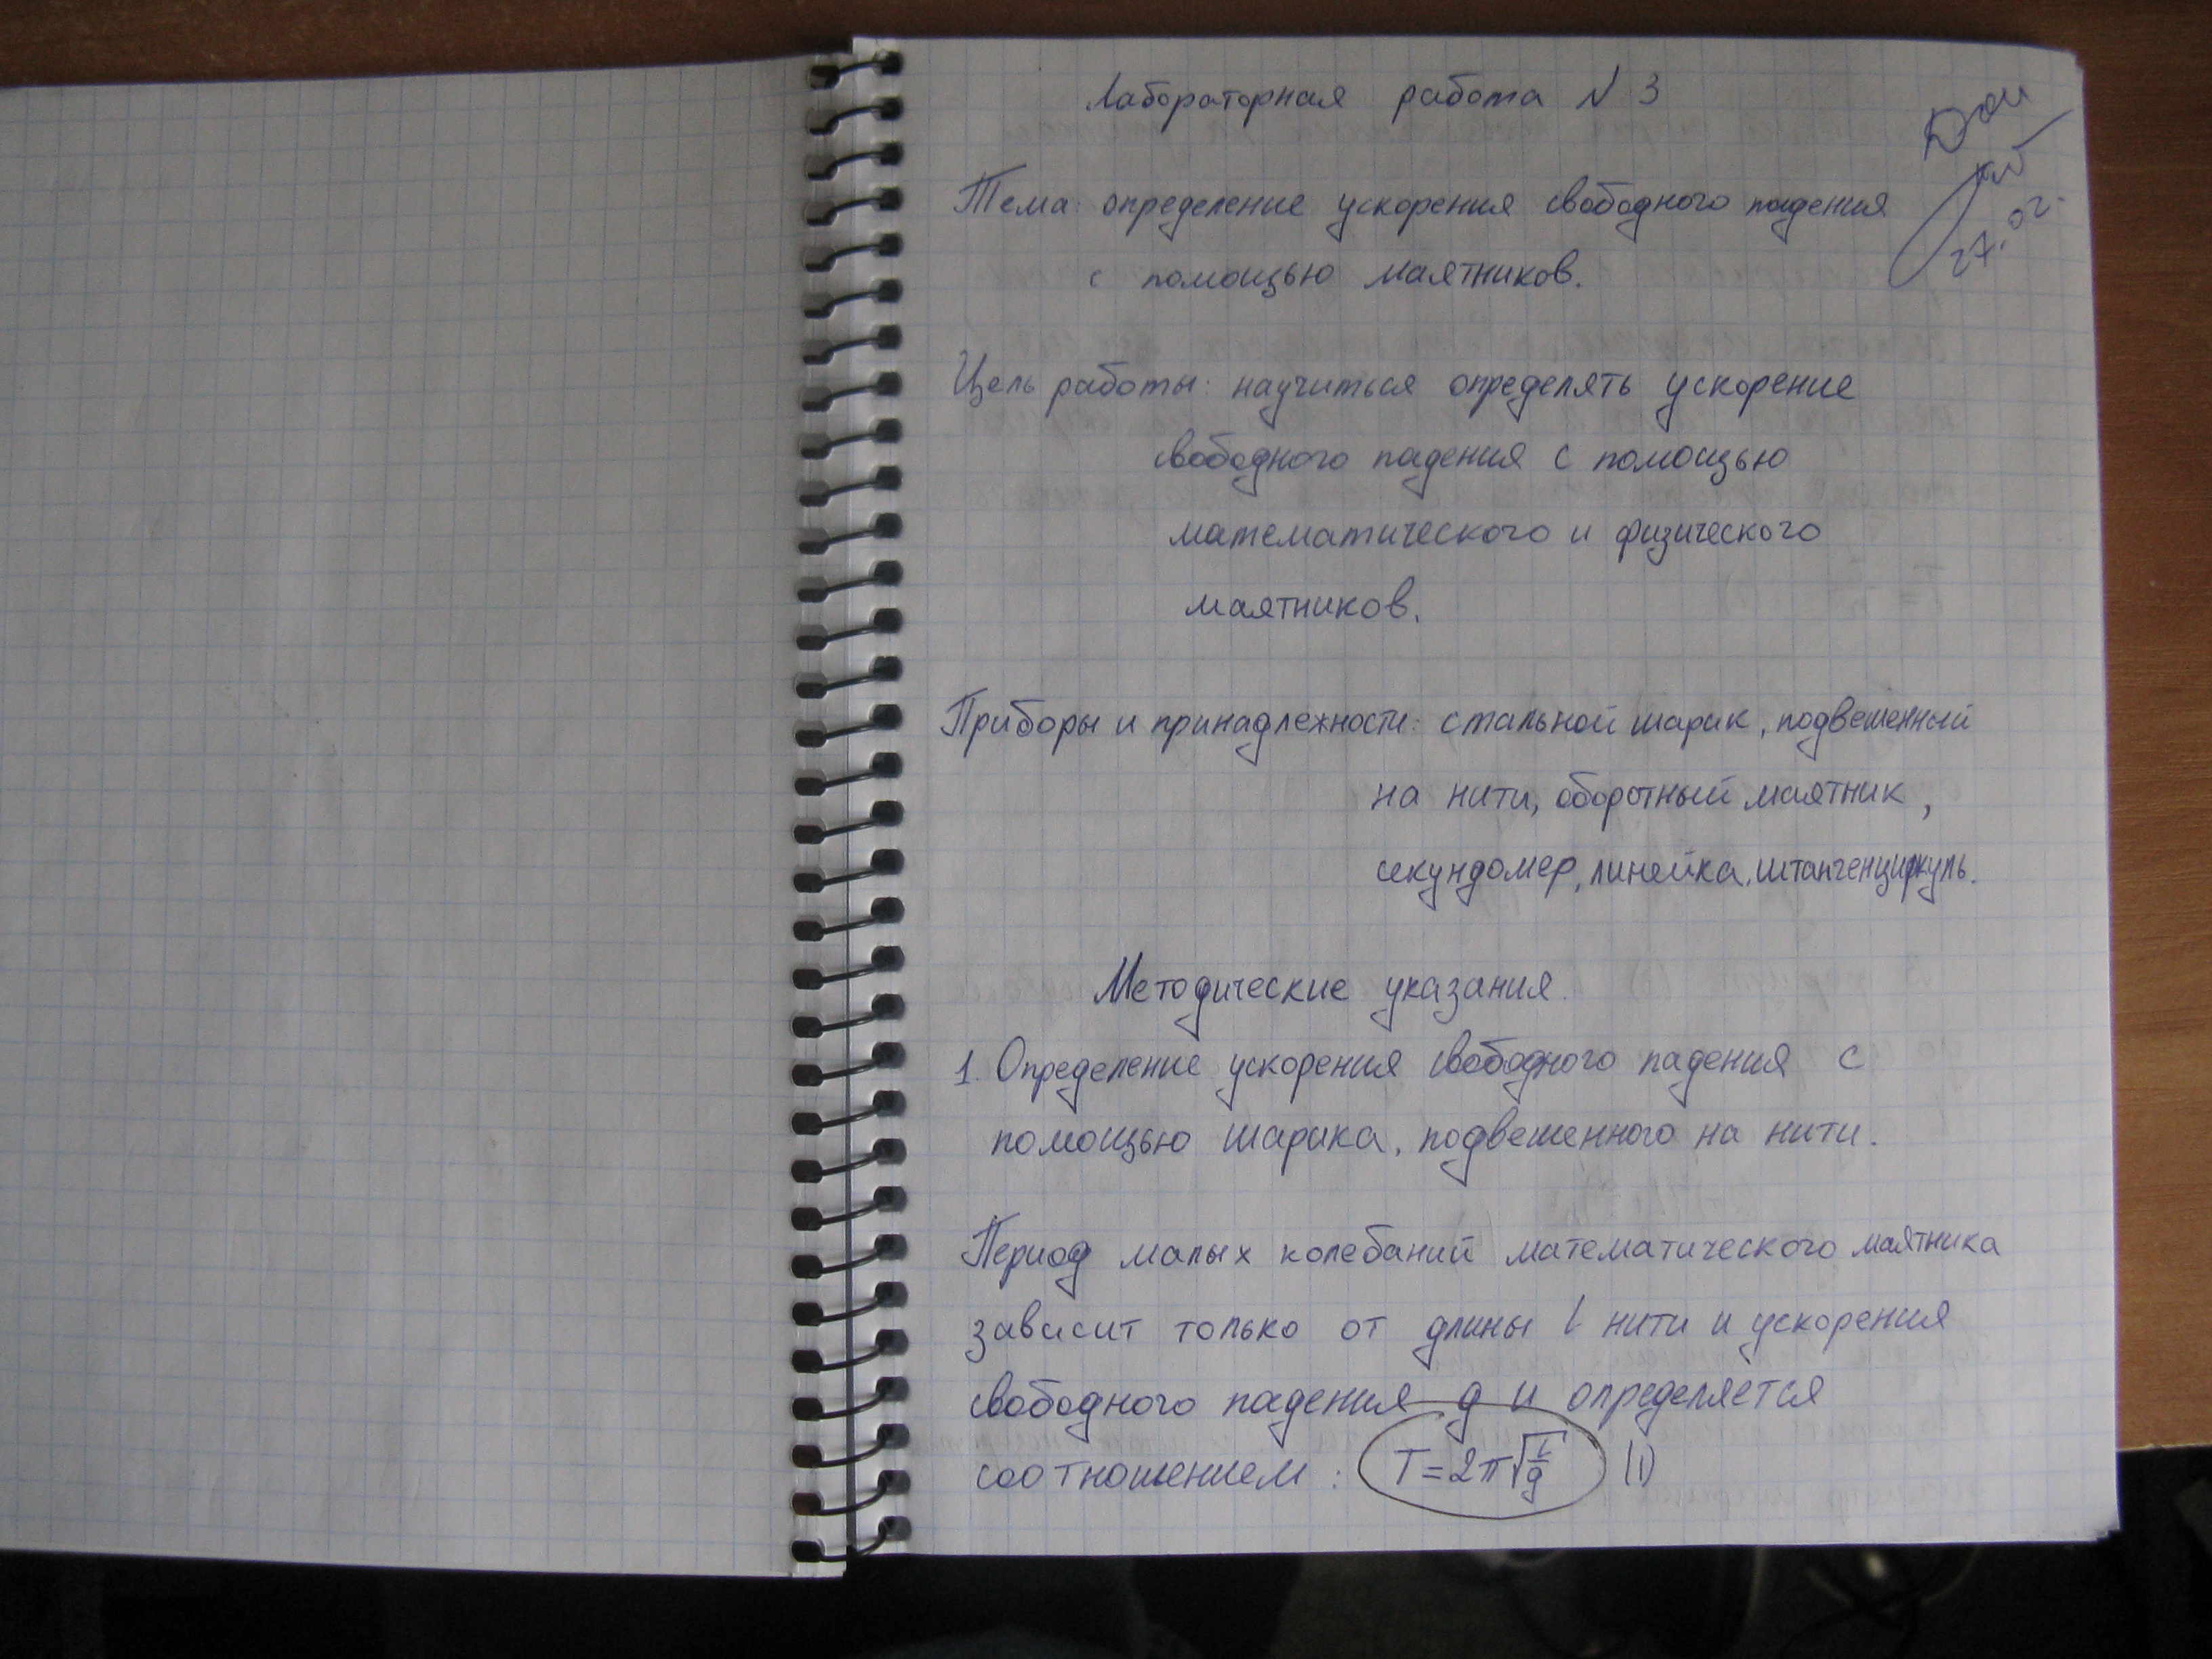 Лабораторная работа N 3
Тема: определение ускорения свободного падения
с помощью маятников.
27.02.
Цель работы: научиться определять ускорение
свободного падения с помощью
математического и физического
маятников.
Приборы и принадлежности: стальной шарик, подвешенный
на нити, оборотный маятник,
секундомер, линейка, штангенциркуль.
Методические указания.
1. Определение ускорения свободного падения с
помощью шарика, подвешенного на нити.
Период малых колебаний математического маятника
зависит только от длины l нити и ускорения
свободного падения g и определяется
соотношением: T=2π√(l/g) (1)